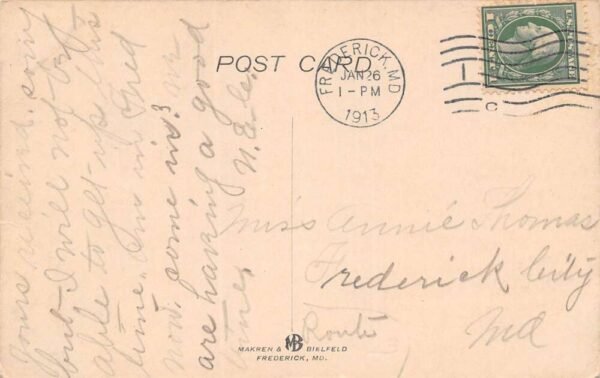 POST CARD
FREDERICK, MD.
JAN 26
1-PM
1913
1
C
Yours received. sorry
but I will not be
able to get up this
time. I'm in Fred
now. come in? we
are having a good
time.
Miss Annie Thomas
Frederick City
Route Md
MAKREN & MB BIELFELD
FREDERICK, MD.